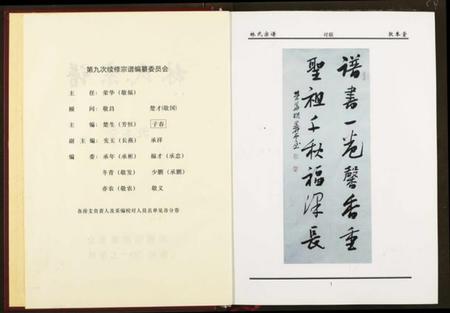 第九次续修宗谱编纂委员会
主　任：荣华（敬福）
顾　问：敬昌　楚才（敬国）
主　编：楚生（芳恒）　于春
副主编：先玉（长燕）　承祥
编　委：承年（承彬）　福才（承忠）
冬青（敬发）　少鹏（承鹏）
亦农（敬农）　敬义
各房支负责人及采编校对人员名单见各分卷
林氏宗谱　讨版　敦本堂
谱書一卷馨香重
聖祖千秋福澤長
1